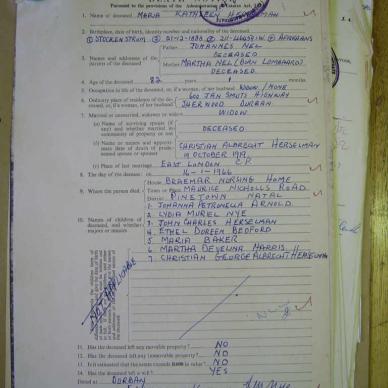 Pursuant to the provisions of the Administration of Estates Act,
1. Name of deceased MARIA KATHLEEN HERSELMAN
2. Birthplace, date of birth, identity number and nationality of the deceased.
STOCKENSTROM
AFRIKAANS
3. Names and addresses of the parents of the deceased
Father JOHANNES NEL
DECEASED
Mother MARTHA NEL (BORN LOMBAARD)
DECEASED
4. Age of the deceased 82 years months
5. Occupation in life of the deceased, or, if a woman, of her husband WIDOW / NONE
6. Ordinary place of residence of the deceased, or, if a woman, of her husband
600 JAN SMUTS HIGHWAY
SHERWOOD DURBAN
7. Married or unmarried, widower or widow WIDOW
(a) Name of surviving spouse (if any) and whether married in community of property or not
DECEASED
(b) Name or names and approximate date of death of predeceased spouse or spouses
CHRISTIAN ALBRECHT HERSELMAN
19 OCTOBER 1919
(c) Place of last marriage EAST LONDON C.P.
8. The day of the decease, on 16-1-1966
9. Where the person died
House BRAEMAR NURSING HOME
Town or Place MAURICE NICHOLLS ROAD
PINETOWN NATAL
10. Names of children of deceased, and whether majors or minors
1. JOHANNA PETRONELA ARNOLD
2. LYDIA MURIEL NYE
3. JOHN CHARLES HERSELMAN
4. ETHEL DOREEN BEDFORD
5. MARIA BAKER
6. MARTHA DEVELINA HARRIS
7. CHRISTIAN GEORGE ALBRECHT HERSELMAN
NOT APPLICABLE
11. Has the deceased left any movable property? NO
12. Has the deceased left any immovable property? NO
13. Is it estimated that the estate exceeds in value? NO
14. Has the deceased left a will? YES
Dated at DURBAN